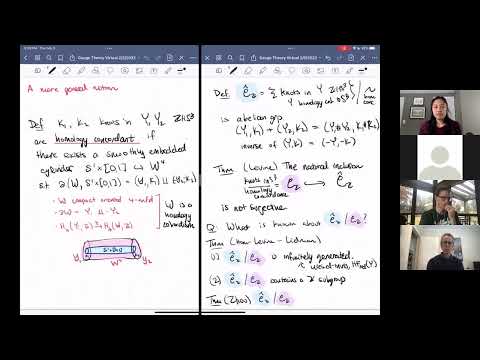 Gauge Theory Virtual 2/3/2023
A more general notion
Def K₁, K₂ knots in Y₁, Y₂ ZHS³
are homology concordant if
there exists a smoothly embedded
cylinder S¹×[0,1] ↪ W⁴
st ∂(W, S¹×[0,1]) = (Y₁, K₁) ⊔
W compact oriented 4-mfld
∂W =
W is a
homology
cobordism
S¹×[0,1]
Y₁
W⁴
Y₂
Gauge Theory Virtual 2/3/2023
Def Ĉ_Z = { knots in Y ZHS³
Y homology cob to S³ } / ~
hom
conc
is abelian grp
(Y₁, K₁) + (Y₂, K₂) = (Y₁#Y₂, K₁#K₂)
inverse of (Y, K) = (-Y, -K)
Thm (Levine) The natural inclusion
knots in S³ /
homology
concordance
= C_Z ↪ Ĉ_Z
is not surjective
Q: What is known about Ĉ_Z / C_Z?
Thm (Hom-Levine-Lidman)
1) Ĉ_Z / C_Z is infinitely generated
(2) Ĉ_Z / C_Z contains a Z subgroup
Thm (Zhou) Ĉ_Z / C_Z